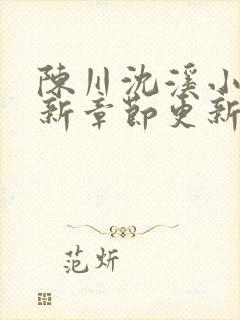 陳川沈溪小
新章節更新
范炘